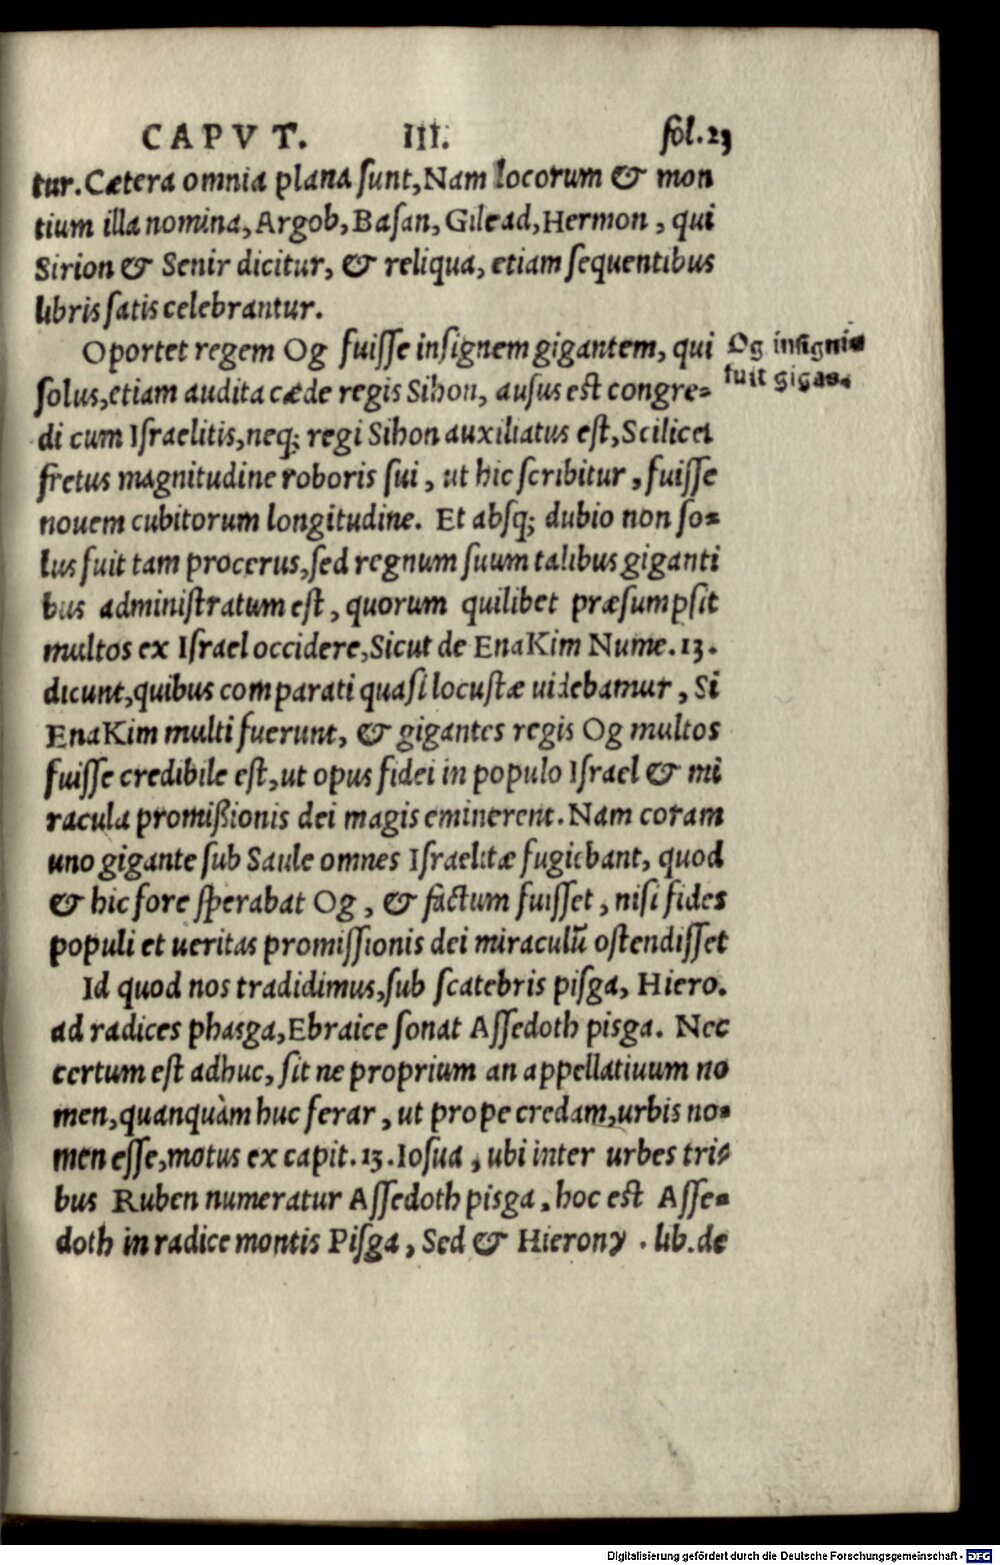 CAPVT. III. fol.23
tur.Cætera omnia plana ſunt,Nam locorum & mon
tium illa nomina,Argob,Baſan,Gilead,Hermon, qui
Sirion & Senir dicitur, & reliqua, etiam ſequentibus
libris ſatis celebrantur.
Oportet regem Og fuiſſe inſignem gigantem, qui
ſolus,etiam audita cæde regis Sihon, auſus eſt congre-
di cum Iſraelitis,neq; regi Sihon auxiliatus eſt,Scilicet
fretus magnitudine roboris ſui, ut hic ſcribitur, fuiſſe
nouem cubitorum longitudine. Et abſq; dubio non ſo-
lus fuit tam procerus,ſed regnum ſuum talibus giganti
bus adminiſtratum eſt, quorum quilibet præſumpſit
multos ex Iſrael occidere,Sicut de EnaKim Nume.13.
dicunt,quibus comparati quaſi locuſtæ uidebamur, Si
EnaKim multi fuerunt, & gigantes regis Og multos
fuiſſe credibile eſt,ut opus fidei in populo Iſrael & mi
racula promiſsionis dei magis eminerent.Nam coram
uno gigante ſub Saule omnes Iſraelitæ fugiebant, quod
& hic fore ſperabat Og, & factum fuiſſet, niſi fides
populi et ueritas promiſſionis dei miraculū oſtendiſſet
Id quod nos tradidimus,ſub ſcatebris piſga, Hiero.
ad radices phasga,Ebraice ſonat Aſſedoth pisga. Nec
certum eſt adhuc, ſit ne proprium an appellatiuum no
men,quanquàm huc ferar, ut prope credam,urbis no-
men eſſe,motus ex capit.13.Ioſua, ubi inter urbes tri-
bus Ruben numeratur Aſſedoth pisga, hoc eſt Aſſe-
doth in radice montis Piſga, Sed & Hierony. lib.de
Og inſignis
fuit gigas.
Digitalisierung gefördert durch die Deutsche Forschungsgemeinschaft - DFG